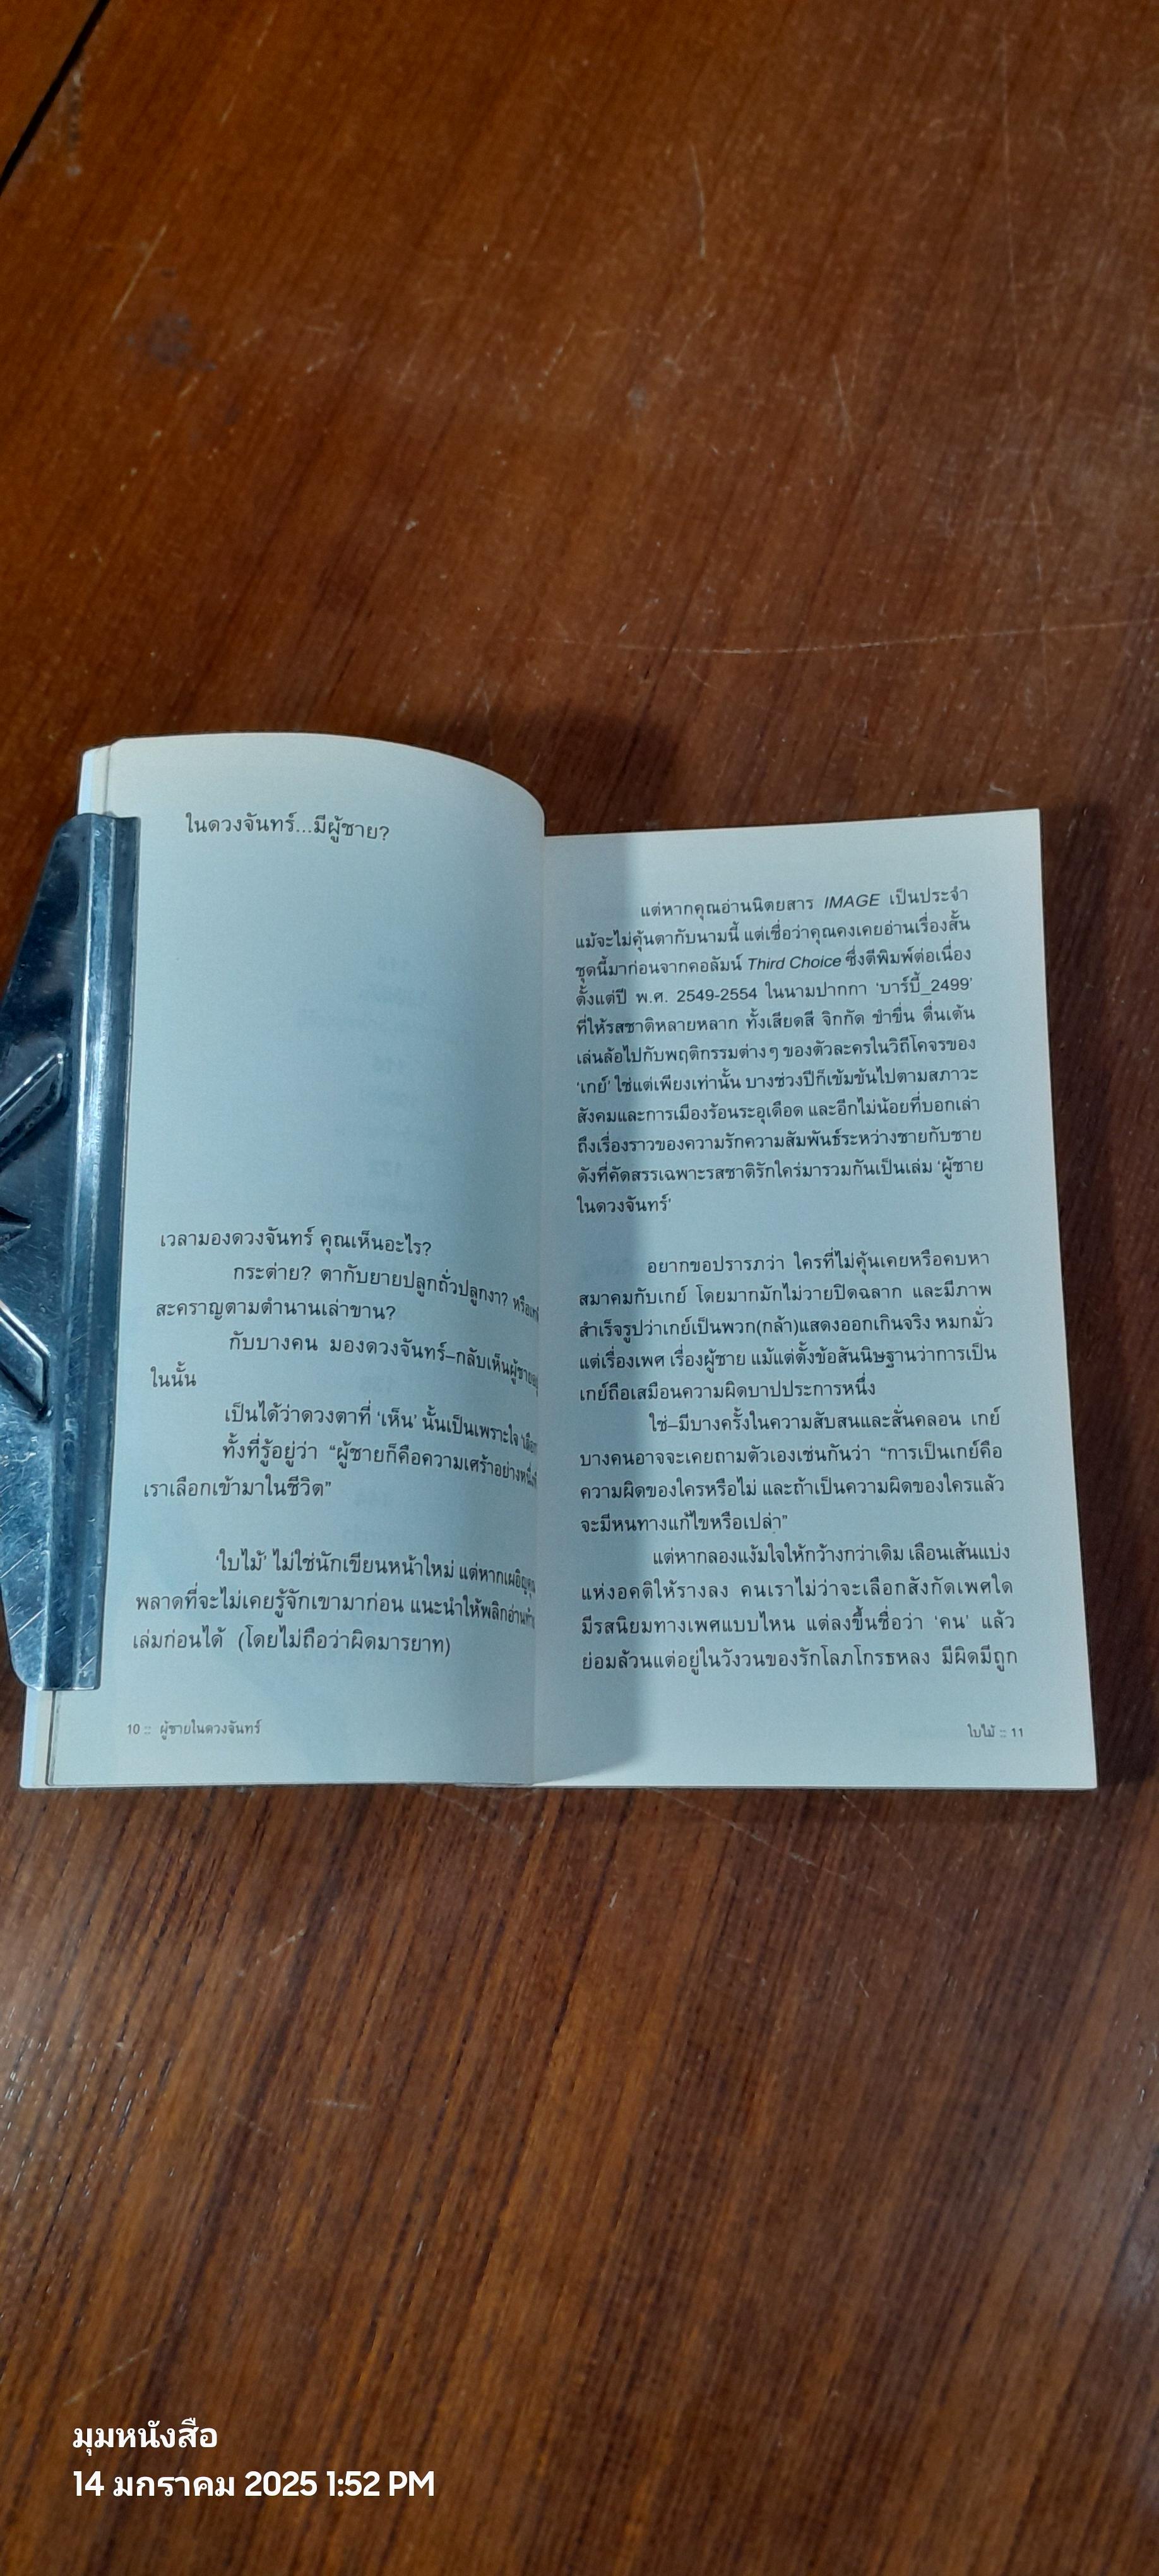 ในดวงจันทร์...มีผู้ชาย?
เวลามองดวงจันทร์ คุณเห็นอะไร?
กระต่าย? ตากับยายปลูกถั่วปลูกงา?
สะคราญตามตำนานเล่าขาน?
กับบางคน มองดวงจันทร์–กลับเห็นผู้ชาย
ในนั้น
เป็นได้ว่าดวงตาที่ ‘เห็น’ นั้นเป็นเพราะใจ
ทั้งที่รู้อยู่ว่า “ผู้ชายก็คือความเศร้าอย่างหนึ่ง
เราเลือกเข้ามาในชีวิต”
‘ใบไม้’ ไม่ใช่นักเขียนหน้าใหม่ แต่หากเผอิญคุณ
พลาดที่จะไม่เคยรู้จักเขามาก่อน แนะนำให้พลิกอ่านท้าย
เล่มก่อนได้ (โดยไม่ถือว่าผิดมารยาท)
10 :: ผู้ชายในดวงจันทร์
แต่หากคุณอ่านนิตยสาร IMAGE เป็นประจำ
แม้จะไม่คุ้นตากับนามนี้ แต่เชื่อว่าคุณคงเคยอ่านเรื่องสั้น
ชุดนี้มาก่อนจากคอลัมน์ Third Choice ซึ่งตีพิมพ์ต่อเนื่อง
ตั้งแต่ปี พ.ศ. 2549-2554 ในนามปากกา ‘บาร์บี้_2499’
ที่ให้รสชาติหลายหลาก ทั้งเสียดสี จิกกัด ขำขื่น ตื่นเต้น
เล่นล้อไปกับพฤติกรรมต่างๆ ของตัวละครในวิถีโคจรของ
‘เกย์’ ใช่แต่เพียงเท่านั้น บางช่วงปีก็เข้มข้นไปตามสภาวะ
สังคมและการเมืองร้อนระอุเดือด และอีกไม่น้อยที่บอกเล่า
ถึงเรื่องราวของความรักความสัมพันธ์ระหว่างชายกับชาย
ดังที่คัดสรรเฉพาะรสชาติรักใคร่มารวมกันเป็นเล่ม ‘ผู้ชาย
ในดวงจันทร์’
อยากขอปรารภว่า ใครที่ไม่คุ้นเคยหรือคบหา
สมาคมกับเกย์ โดยมากมักไม่วายปิดฉลาก และมีภาพ
สำเร็จรูปว่าเกย์เป็นพวก(กล้า)แสดงออกเกินจริง หมกมั่ว
แต่เรื่องเพศ เรื่องผู้ชาย แม้แต่ตั้งข้อสันนิษฐานว่าการเป็น
เกย์ถือเสมือนความผิดบาปประการหนึ่ง
ใช่–มีบางครั้งในความสับสนและสั่นคลอน เกย์
บางคนอาจจะเคยถามตัวเองเช่นกันว่า “การเป็นเกย์คือ
ความผิดของใครหรือไม่ และถ้าเป็นความผิดของใครแล้ว
จะมีหนทางแก้ไขหรือเปล่า”
แต่หากลองแง้มใจให้กว้างกว่าเดิม เลือนเส้นแบ่ง
แห่งอคติให้รางลง คนเราไม่ว่าจะเลือกสังกัดเพศใด
มีรสนิยมทางเพศแบบไหน แต่ลงขึ้นชื่อว่า ‘คน’ แล้ว
ย่อมล้วนแต่อยู่ในวังวนของรักโลภโกรธหลง มีผิดมีถูก
ใบไม้ :: 11
มุมหนังสือ
14 มกราคม 2025 1:52 PM